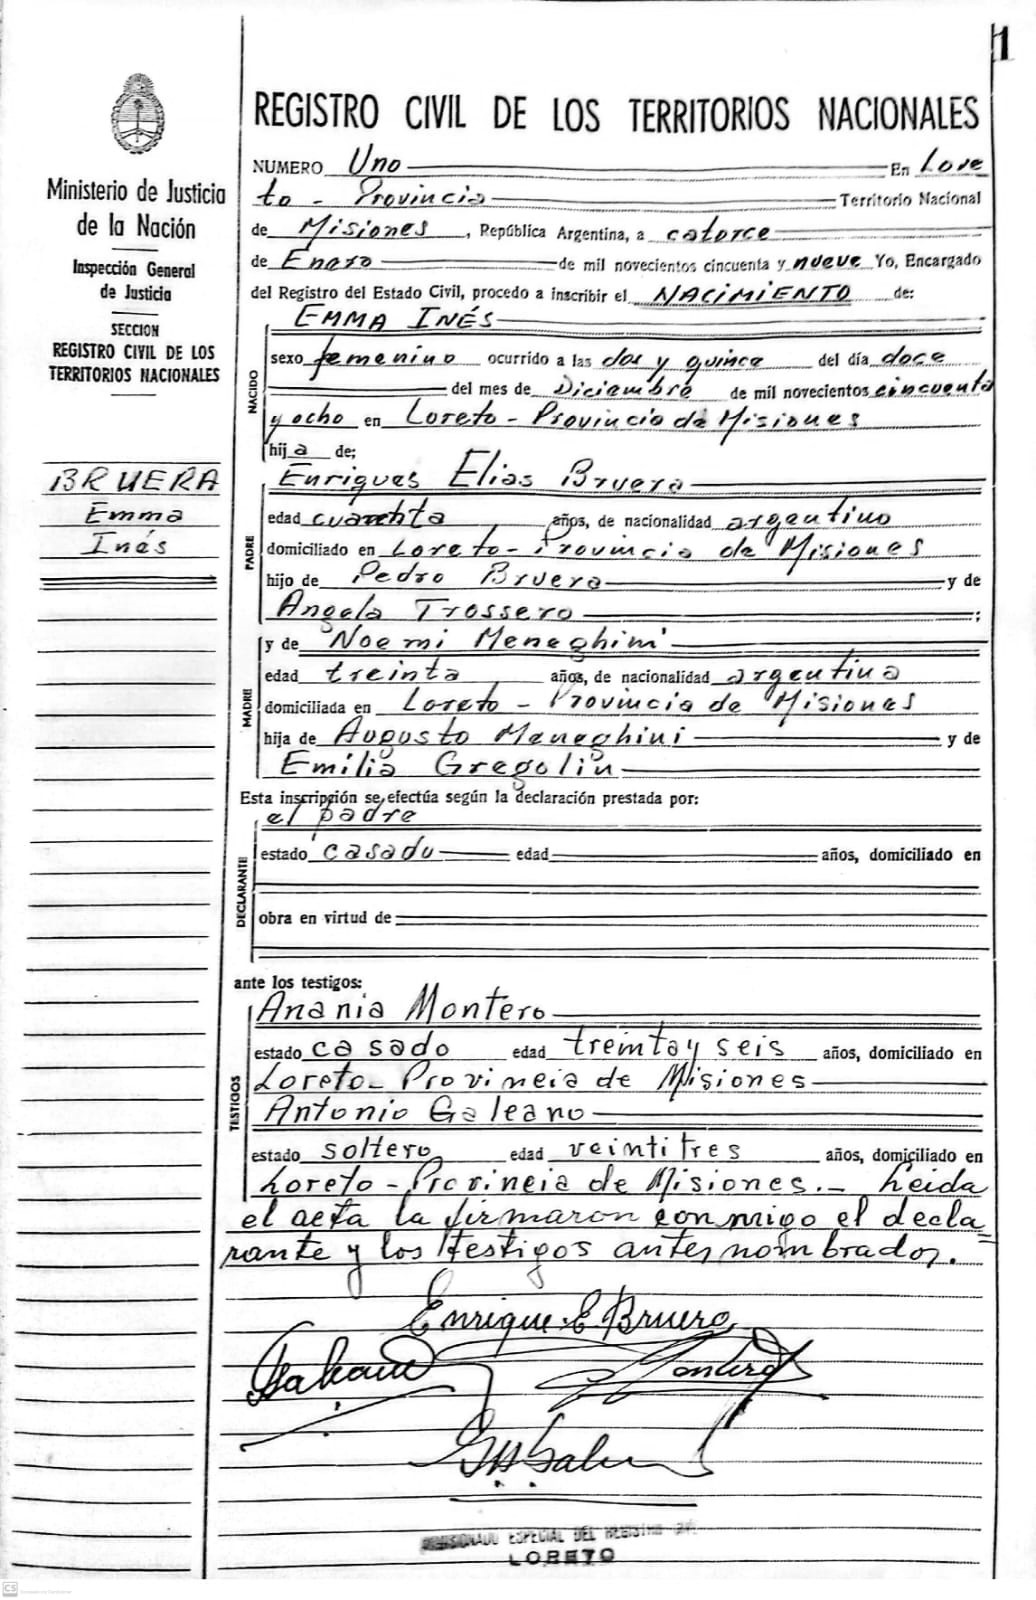 1
REGISTRO CIVIL DE LOS TERRITORIOS NACIONALES
Ministerio de Justicia
de la Nación
Inspección General
de Justicia
SECCION
REGISTRO CIVIL DE LOS
TERRITORIOS NACIONALES
BRUERA
Emma
Inés
NUMERO Uno En Lore
to - Provincia Territorio Nacional
de Misiones, República Argentina, a catorce
de Enero de mil novecientos cincuenta y nueve Yo, Encargado
del Registro del Estado Civil, procedo a inscribir el NACIMIENTO de:
NACIDO
EMMA INÉS
sexo femenino ocurrido a las dos y quince del día doce
del mes de Diciembre de mil novecientos cincuenta
y ocho en Loreto - Provincia de Misiones
hija de;
PADRE
Enriques Elias Bruera
edad cuarenta años, de nacionalidad argentino
domiciliado en Loreto - Provincia de Misiones
hijo de Pedro Bruera y de
Angela Trossero ;
MADRE
y de Noemi Meneghini
edad treinta años, de nacionalidad argentina
domiciliada en Loreto - Provincia de Misiones
hija de Augusto Meneghini y de
Emilia Gregolin
Esta inscripción se efectúa según la declaración prestada por:
DECLARANTE
el padre
estado casado edad años, domiciliado en
obra en virtud de
ante los testigos:
TESTIGOS
Anania Montero
estado casado edad treinta y seis años, domiciliado en
Loreto - Provincia de Misiones
Antonio Galeano
estado soltero edad veintitres años, domiciliado en
Loreto - Provincia de Misiones. - Leida
el acta la firmaron conmigo el decla=
rante y los testigos antes nombrados.
Enrique E Bruera
Galeano Montero
ESPECIAL DEL REGISTRO
LORETO
CS